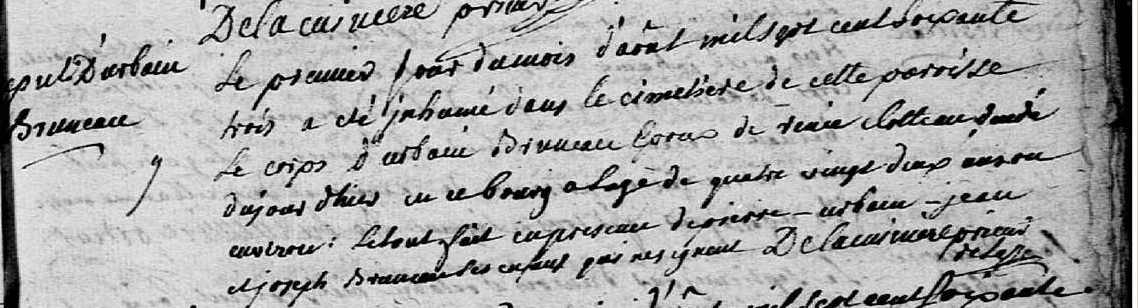 Delacuisiniere prieur
sepult D'urbain
Bruneau
Le premier jour du mois d'aout mil sept cent soixante
trois a eté inhumé dans le cimetiere de cette paroisse
Le corps d'urbain Bruneau Epoux de renée decedé
du jour d'hier en ce bourg a l'age de quatre vingt deux ans ou
environ : Le tout fait en presence de pierre – urbain – jean
et joseph Bruneau ses enfans
Delacuisiniere prieur
mil sept cent soixante